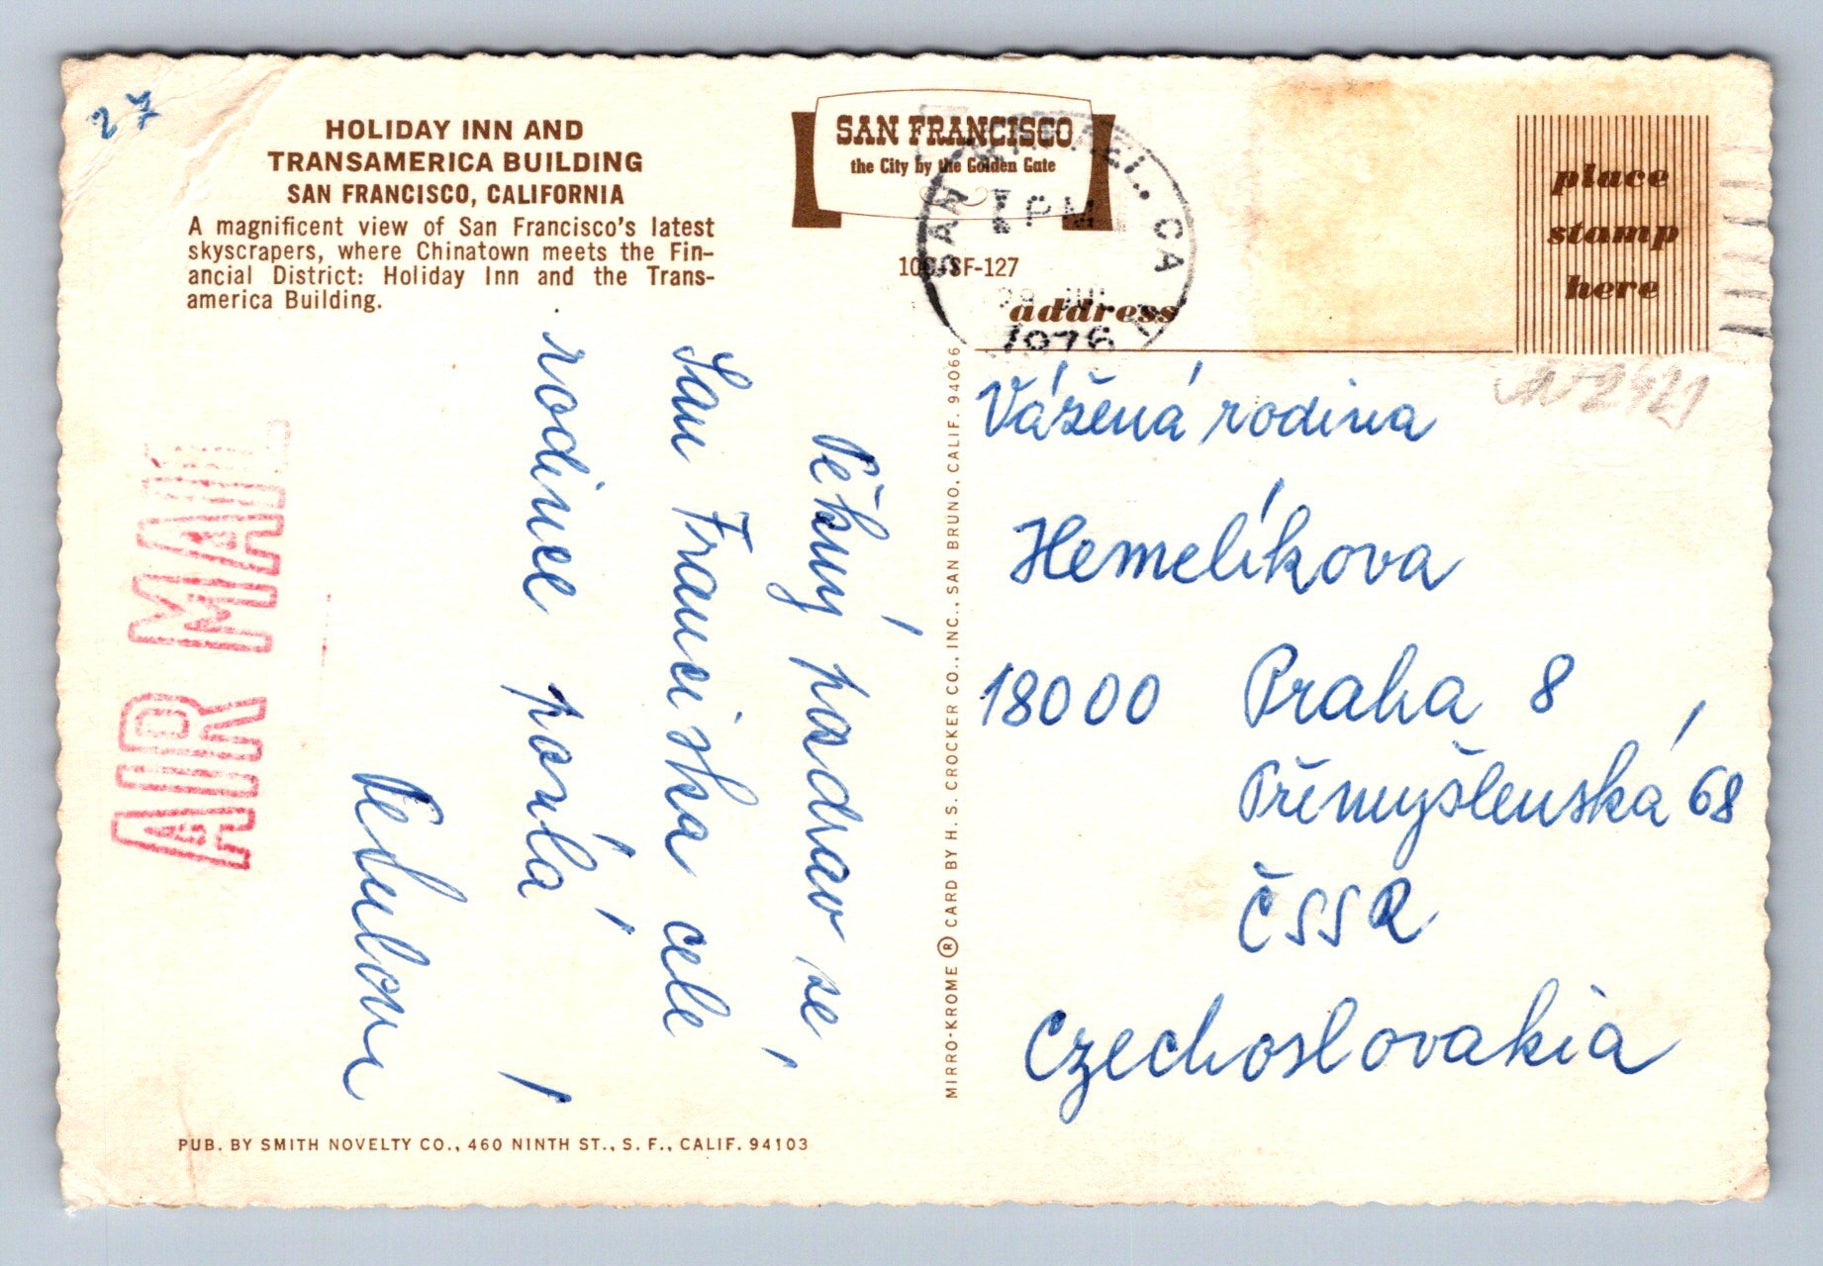 27
HOLIDAY INN AND
TRANSAMERICA BUILDING
SAN FRANCISCO, CALIFORNIA
A magnificent view of San Francisco's latest
skyscrapers, where Chinatown meets the Fin-
ancial District: Holiday Inn and the Trans-
america Building.
AIR MAIL
Pěkný pozdrav ze
San Franciska celé
rodince posílá
PUB. BY SMITH NOVELTY CO., 460 NINTH ST., S. F., CALIF. 94103
MIRRO-KROME ® CARD BY H. S. CROCKER CO., INC., SAN BRUNO, CALIF. 94066
SAN FRANCISCO
the City by the Golden Gate
SF-127
address
SAN RAFAEL, CA
PM
1976
place
stamp
here
Vážená rodina
Hemelíkova
18000 Praha 8
Přemyšlenská 68
ČSSR
Czechoslovakia